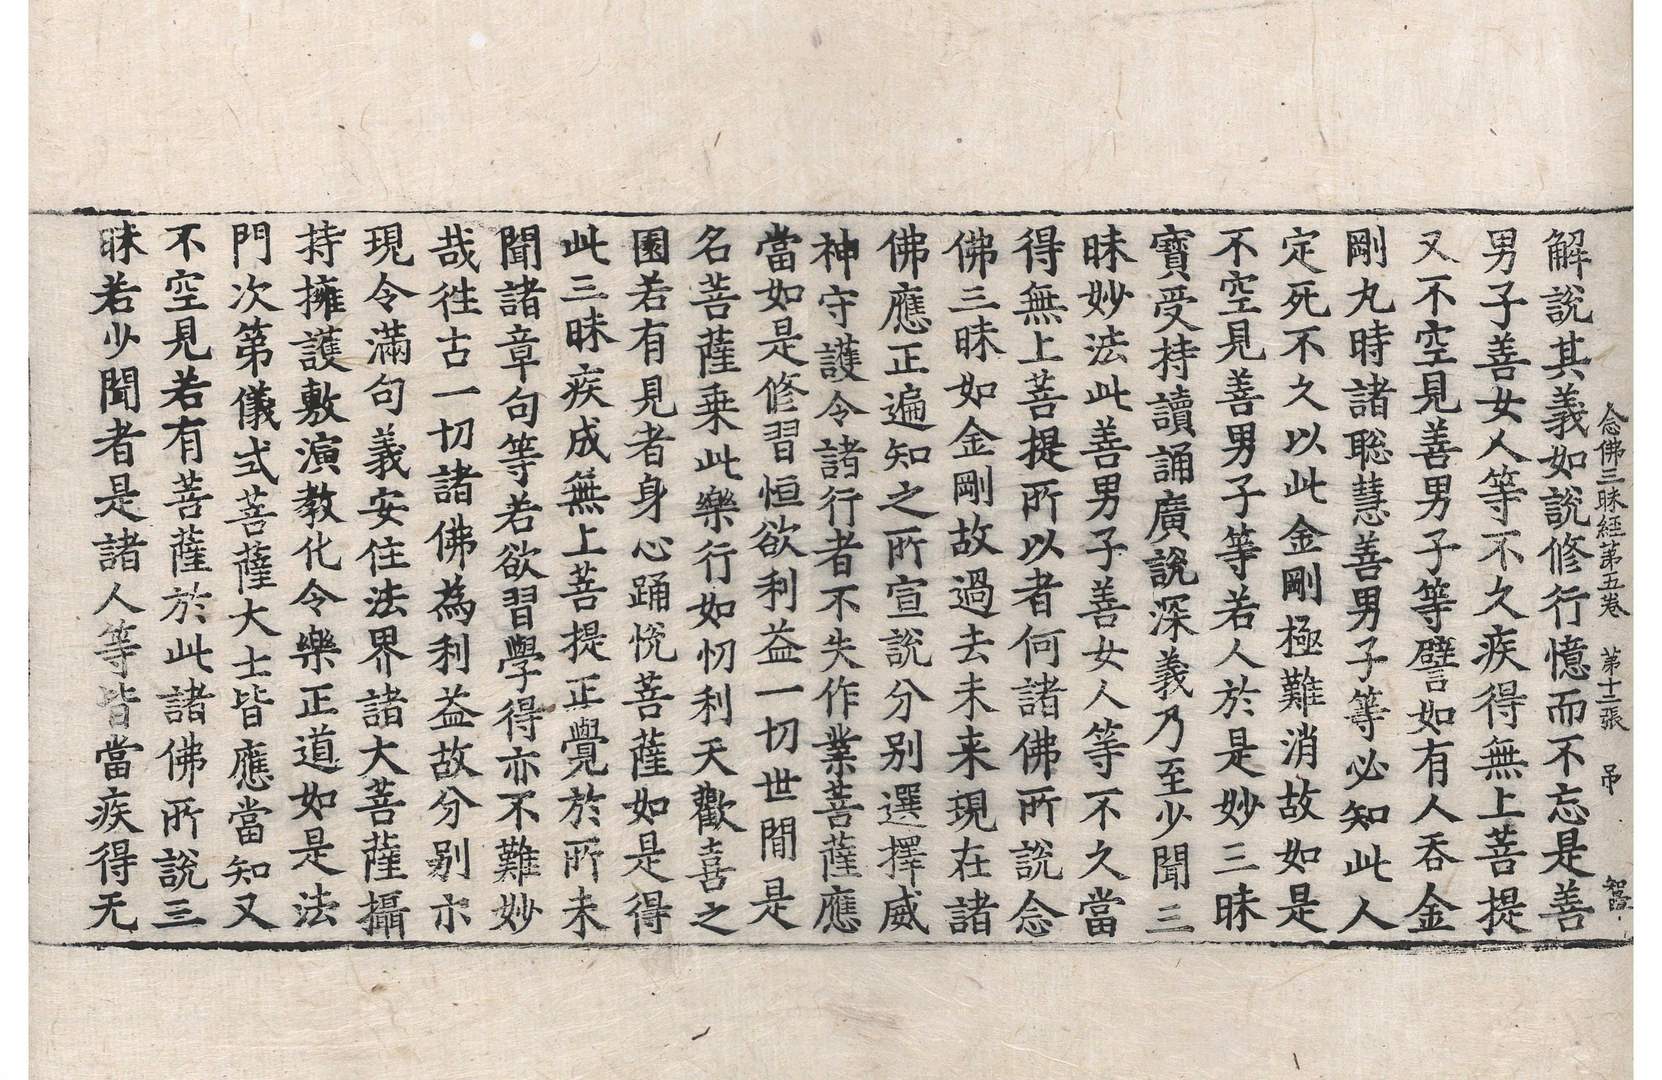 念佛三昧經第五卷 第十二張 吊 智
解說其義如說修行憶而不忘是善
男子善女人等不久疾得無上菩提
又不空見善男子等譬如有人吞金
剛丸時諸聡慧善男子等必知此人
定死不久以此金剛極難消故如是
不空見善男子等若人於是妙三昧
寶受持讀誦廣說深義乃至少聞三
昧妙法此善男子善女人等不久當
得無上菩提所以者何諸佛所說念
佛三昧如金剛故過去未来現在諸
佛應正遍知之所宣說分别選擇威
神守護令諸行者不失作業菩薩應
當如是修習恒欲利益一切世間是
名菩薩乗此樂行如忉利天歡喜之
園若有見者身心踊悅菩薩如是得
此三昧疾成無上菩提正覺於所未
聞諸章句等若欲習學得亦不難妙
哉徃古一切諸佛為利益故分别示
現令滿句義安住法界諸大菩薩攝
持擁護敷演教化令樂正道如是法
門次第儀式菩薩大士皆應當知又
不空見若有菩薩於此諸佛所說三
昧若少聞者是諸人等皆當疾得无